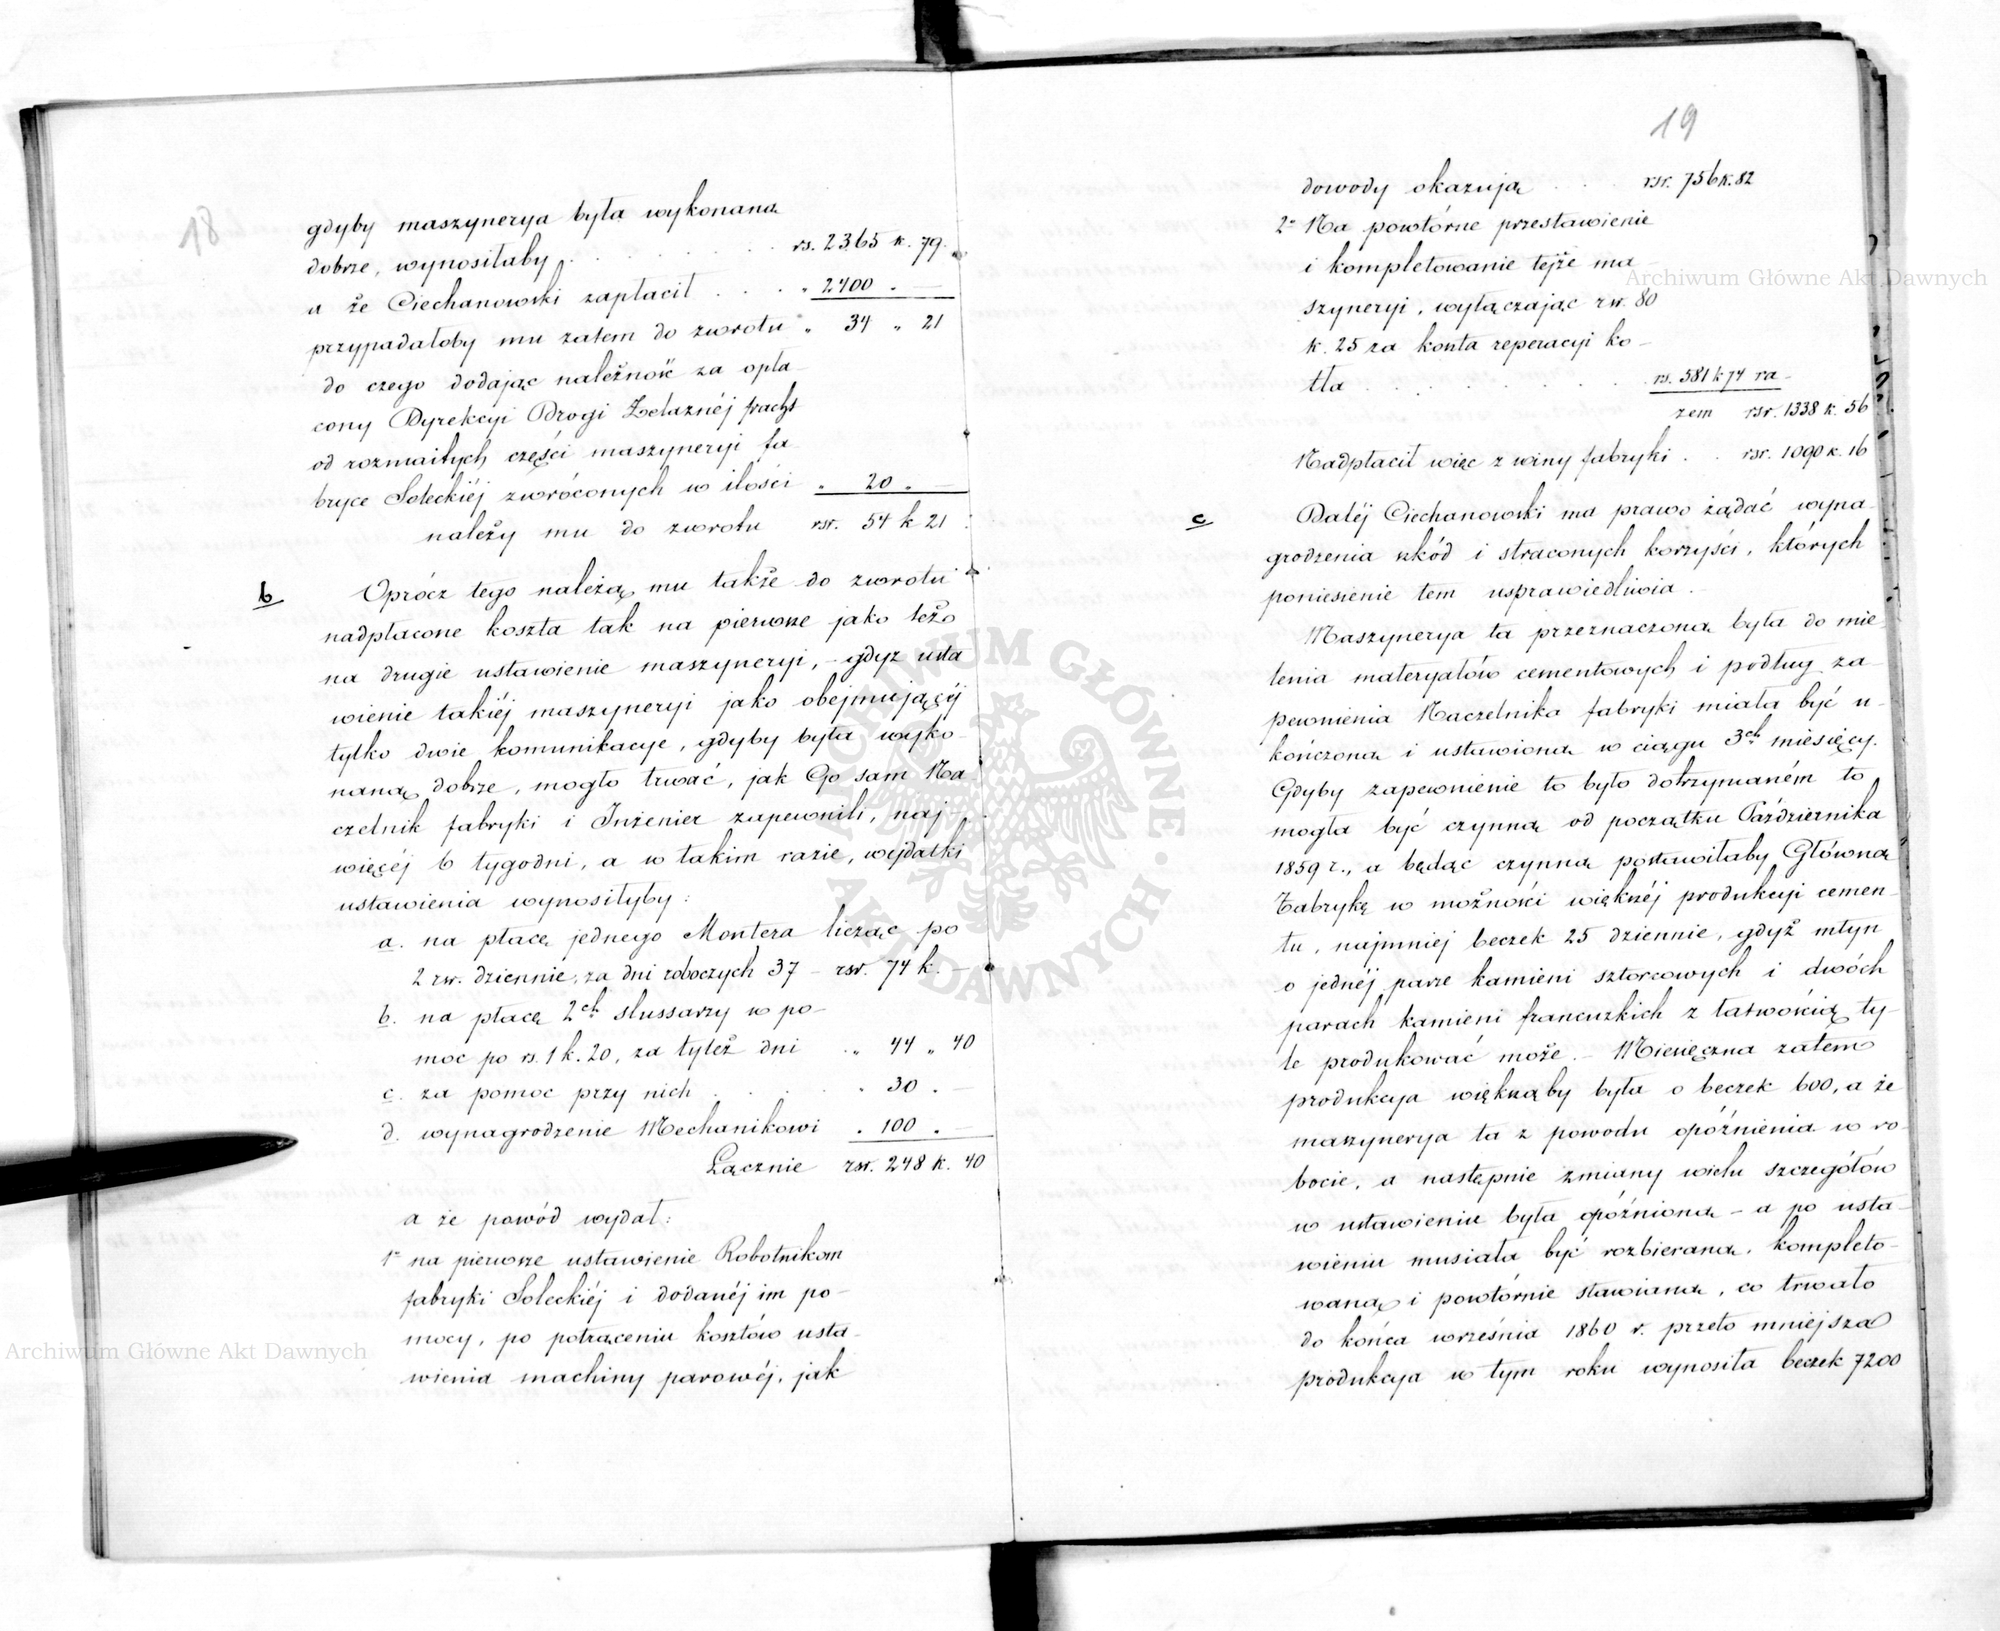 18
gdyby maszynerya była wykonana
dobrze, wynosiłaby . . . . . rs. 2365 k. 79.
a że Ciechanowski zapłacił . . . „ 2400 „ —
przypadałoby mu zatem do zwrotu „ 34 „ 21
do czego dodając należność za opła-
cony Dyrekcyi Drogi Żelaznéj fracht
od rozmaitych części maszyneryi fa-
bryce Soleckiéj zwróconych w ilości „ 20 „ —
należy mu do zwrotu rsr. 54 k 21
b Oprócz tego należą mu także do zwrotu
nadpłacone koszta tak na pierwsze jako też
na drugie ustawienie maszyneryi, – gdyż usta
wienie takiéj maszyneryi jako obejmującéj
tylko dwie komunikacye, gdyby była wyko-
naną dobrze, mogło trwać, jak Go sam Na-
czelnik fabryki i Inżenier zapewnili, naj-
więcéj 6 tygodni, a w takim razie, wydatki
ustawienia wynosiłyby:
a. na płacę jednego Montera licząc po
2 rsr. dziennie, za dni roboczych 37 – rsr. 74 k. —
b. na płacę 2ch slussarzy w po-
moc po rs. 1 k. 20, za tyleż dni „ 44 „ 40
c. za pomoc przy nich . . . . „ 30 . —
d. wynagrodzenie Mechanikowi „ 100 „ —
Łącznie rsr. 248 k. 40
a że powód wydał:
1º na pierwsze ustawienie Robotnikom
fabryki Soleckiéj i dodanéj im po-
mocy, po potrąceniu kosztów usta-
wienia machiny parowéj, jak
19
dowody okazują . . . rsr. 756 k. 82
2º Na powtórne przestawienie
i kompletowanie tejże ma-
szyneryi, wyłączając rsr. 80
k. 25 za koszta reperacyi ko-
tła . . . . . . . rs. 581 k 74 ra-
zem rsr. 1338 k. 56
Nadpłacił więc z winy fabryki . . rsr. 1090 k. 16
c Daléj Ciechanowski ma prawo żądać wyna-
grodzenia szkód i straconych korzyści, których
poniesienie tem usprawiedliwia.
Maszynerya ta przeznaczoną była do mie-
lenia materyałów cementowych i podług za-
pewnienia Naczelnika fabryki miała być u-
kończoną i ustawioną w ciągu 3ch miesięcy.
Gdyby zapewnienie to było dotrzymaném to
mogła być czynną od początku Października
1859 r., a będąc czynną postawiłaby Główną
Fabrykę w możności większéj produkcyi cemen-
tu, najmniej beczek 25 dziennie, gdyż młyn
o jednéj parze kamieni sztorcowych i dwóch
parach kamieni francuzkich z łatwością ty-
le produkować może. – Miesięczna zatem
produkcya większąby była o beczek 600, a że
maszynerya ta z powodu opóźnienia w ro-
bocie, a następnie zmiany wielu szczegółów
w ustawieniu była opóźnioną – a po usta-
wieniu musiała być rozbieraną, kompleto-
waną i powtórnie stawianą, co trwało
do końca września 1860 r. przeto mniejsza
produkcya w tym roku wynosiła beczek 7200
Archiwum Główne Akt Dawnych
Archiwum Główne Akt Dawnych
ARCHIWUM GŁÓWNE AKT DAWNYCH